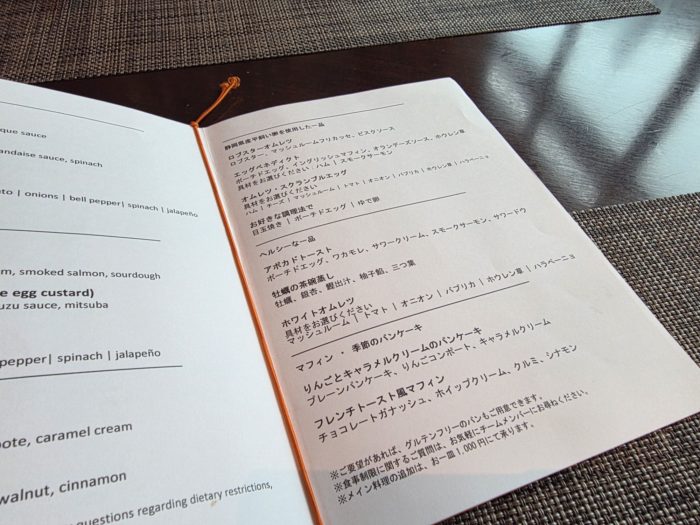 que sauce
andaise sauce, spinach
to | onions | bell pepper| spinach | jalapeño
m, smoked salmon, sourdough
e egg custard)
uzu sauce, mitsuba
pepper| spinach | jalapeño
ote, caramel cream
walnut, cinnamon
questions regarding dietary restrictions,
静岡県産平飼い卵を使用した一品
ロブスターオムレツ
ロブスター、マッシュルームフリカッセ、ビスクソース
エッグベネディクト
ポーチドエッグ、イングリッシュマフィン、オランデーズソース、ホウレン草
具材をお選びください ハム | スモークサーモン
オムレツ・スクランブルエッグ
具材をお選びください
ハム | チーズ | マッシュルーム | トマト | オニオン | パプリカ | ホウレン草 | ハラペーニョ
お好きな調理法で
目玉焼き | ポーチドエッグ | ゆで卵
ヘルシーな一品
アボカドトースト
ポーチドエッグ、ワカモレ、サワークリーム、スモークサーモン、サワードウ
牡蠣の茶碗蒸し
牡蠣、銀杏、鰹出汁、柚子餡、三つ葉
ホワイトオムレツ
具材をお選びください
マッシュルーム | トマト | オニオン | パプリカ | ホウレン草 | ハラペーニョ
マフィン ・ 季節のパンケーキ
りんごとキャラメルクリームのパンケーキ
プレーンパンケーキ、りんごコンポート、キャラメルクリーム
フレンチトースト風マフィン
チョコレートガナッシュ、ホイップクリーム、クルミ、シナモン
※ご要望があれば、グルテンフリーのパンもご用意できます。
※食事制限に関するご質問は、お気軽にチームメンバーにお尋ねください。
※メイン料理の追加は、お一皿1,000円にて承ります。